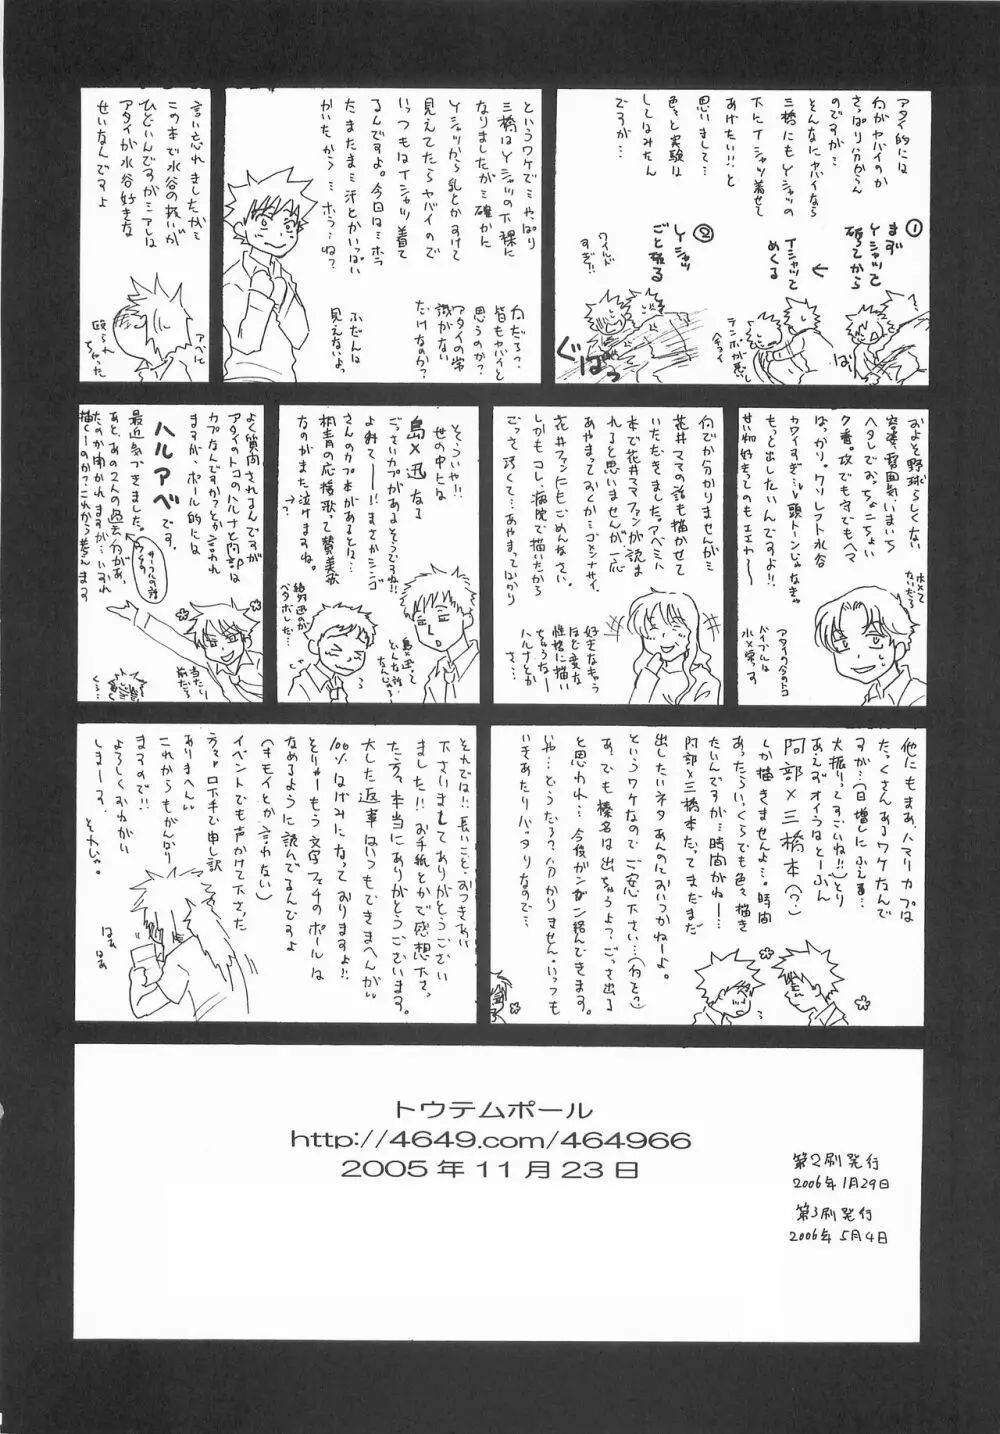 アタイ的には
何がヤバイのか
さっぱり分からん
のですが…
そんなにヤバイなら
三橋にもYシャツの
下にTシャツ着せて
あげたい!!と
思いまして…
色々と実験は
してはみたん
ですが…
①
まず
Yシャツを
破ってから
Tシャツを
めくる
②
Yシャツ
ごと破る
ワイルド
すぎ!!
テンポが悪い
ぐばっ
というワケでミやっぱり
三橋はYシャツの下裸に
なりましたがミ確かに
Yシャツから乳とかすけて
見えてたらヤバイので
いつもはTシャツ着て
るんですよ。今日はミホラ
たまたまミ汗とかいっぱい
かいたから…ホラ…ね?
何だろ?
皆もヤバイと
思うのか?
アタイの常
識がない
だけなのか?
ふだんは
見えないよ。
言い忘れましたがミ
この本で水谷の扱いが
ひどいんですがミアレは
アタイが水谷好きな
せいなんですよ
アベに
殴られ
ちゃった
およそ野球らしくない
容姿、雰囲気、いまいち
ヘタレでおっちょこちょい
9番。攻でも守でもヘマ
ばっかり。クソレフト水谷
カワイすぎ…♥頭トーンじゃなきゃ
もっと出したいんですよ!!
アタイの今のトコ
バイブルは
水×栄っす
何でか分かりませんがミ
花井ママの話も描かせて
いただきました。アベミハ
本で花井ママファンが読ま
れると思いませんが一応
あやまっておくかミゴメンナサイ。
花井ファンにもごめんなさい。
しかもコレ、病院で描いたから
ごっさ汚くて…あやまってばっかり
好きなキャラ
ほど変な
性格に描い
ちゃうなー
ハルナとか
さ…
そそういや!!
世の中には
島×迅な
ごっさいカプがあるそうですね!!
よみてー――!!まさかシンゴ
さんのカプ本があるとは…
桐青の応援歌って賛美歌
なのがまた泣けますね。
島×迅って
どんな話
なんじゃ…
絶対迅のが
ベタボレした…
よく質問されるんですが
アタイのトコのハルナと阿部は
カプなんですか?とか言われ
ますが、ポール的には
ハルアベです。
最近気づきました。
あと、あの2人の過去に何があっ
たのか聞かれますが…いずれ
描くーのか?これから考えます
サークルの話
当たり
前だろ
他にもまあ、ハマリカプは
たっくさんあるワケなんで
すが…(日増しにふえる…
大振りってすごいね!!)とり
あえずオイラはとーぶん
阿部×三橋本(?)
しか描きませんよ…。時間
あったらいっくらでも色々描き
たいんですが…時間がねー…
阿部×三橋本だってまだまだ
出したいネタあんのにおいつかねーよ。
というワケなのでご安心下さい…(何を?)
あ、でも榛名は出ちゃうよ?ごっさ出る
と思われ…今後がンガン絡んできます。
いや…どうだろ?分かりません。いっつも
いきあたりバッタリなので…
それでは!!長いこと、おつきあい
下さいましてありがとうござい
ました!!お手紙とかで感想下さっ
た方々、本当にありがとうございます。
大した返事はいつもできまへんが、
100%はげみになっておりますよ!!
そりゃーもう文字フェチのポールは
なめるように読んでるんですよ
(キモイとか言わない)
イベントでも声かけて下さった
方々♥口下手で申し訳
ありまへん。
これからもがんばり
まするので!!
よろしくおねがい
しまーす。
それじゃ。
はぁ
はぁ
トウテムポール
http://4649.com/464966
2005年11月23日
第2刷発行
2006年1月29日
第3刷発行
2006年5月4日